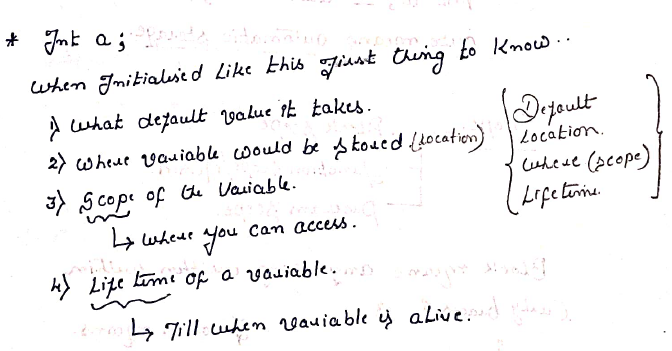 * Int a;
when Initialised Like this First thing to know..
1) what default value it takes.
2) where variable would be stored (Location)
3) Scope of the Variable.
↳ where you can access.
4) Life time of a variable.
↳ Till when variable is alive.
Default
Location.
where (scope)
Lifetime.